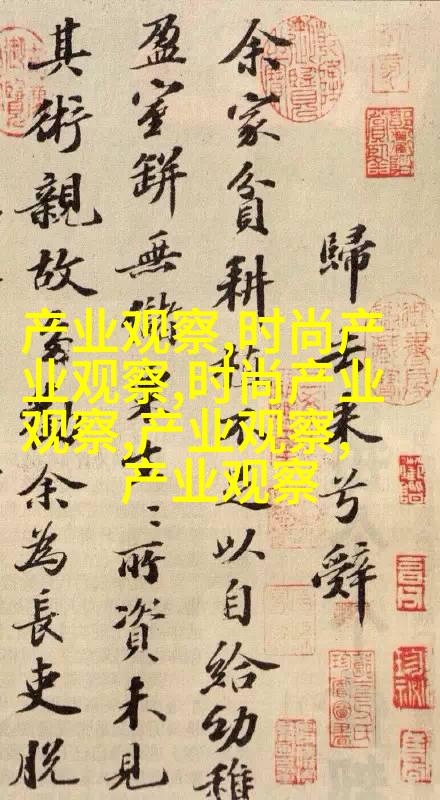 歸去來兮辭
余家貧耕植不足以自給幼稚
盈室缾無儲粟生〻所資未見
其術親故多勸余為長吏脫
产业观察,时尚产
业观察,时尚产业
观察,产业观察,
产业观察